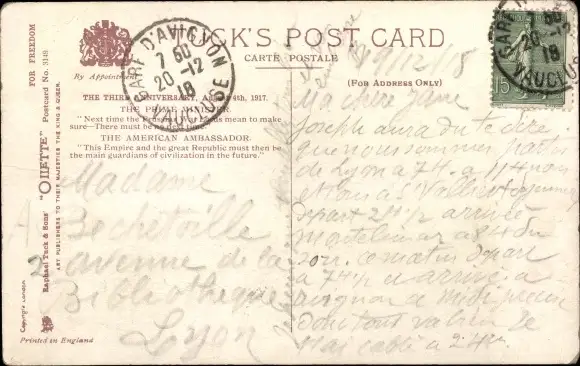 TUCK'S POST CARD
CARTE POSTALE
By Appointment
(For Address Only)
FOR FREEDOM
Postcard No. 3149
"OILETTE"
Raphael Tuck & Sons'
ART PUBLISHERS TO THEIR MAJESTIES THE KING & QUEEN.
Copyright London
Printed in England
GARE D'AVIGNON
7 50
20 -12
18
VAUCLUSE
15
The Third Anniversary, August 4th, 1917.
The Prime Minister.
"Next time the Prussian War Lords mean to make
sure—There must be no next time."
The American Ambassador.
"This Empire and the great Republic must then be
the main guardians of civilization in the future."
Madame
Bechetoille
2 avenue de la
Bibliothèque
Lyon
19/12/18
Ma chère Jane
Joseph aura du te dire
que nous sommes partis
de Lyon à 7 h.
et nous à St Vallier
départ 2 h 1/2 arrivée
Montelimar à 8 h du
soir. ce matin départ
à 7 h 1/2 et arrivée à
Avignon à midi
donc tout va bien Je
t'ai câblé à 2 h